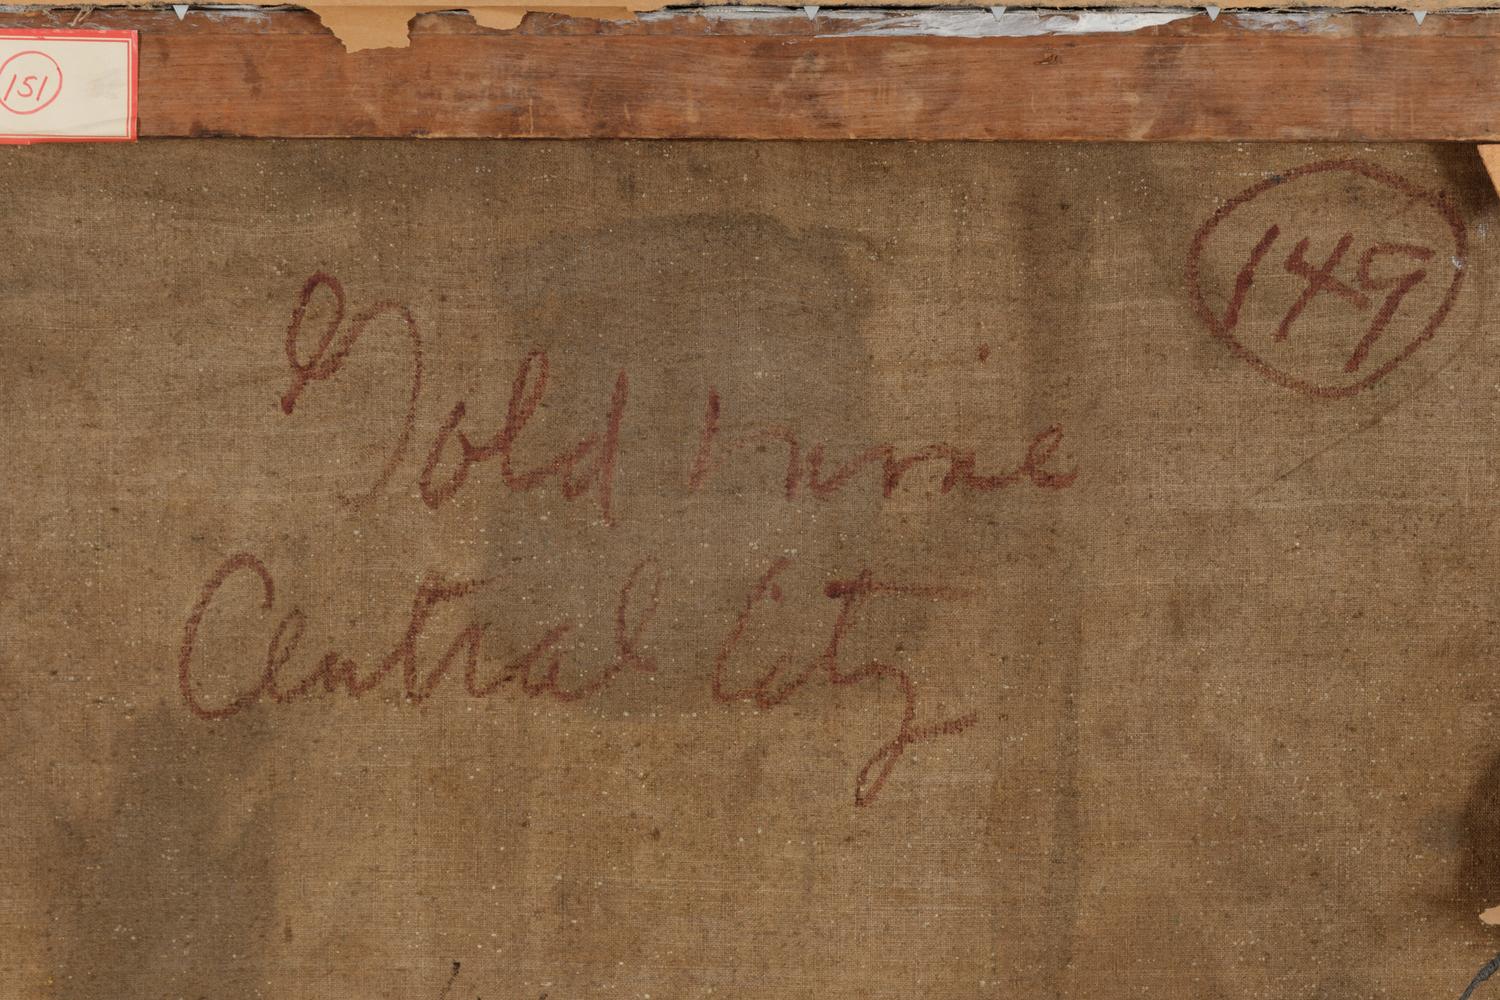 151
149
Gold mine
Central City